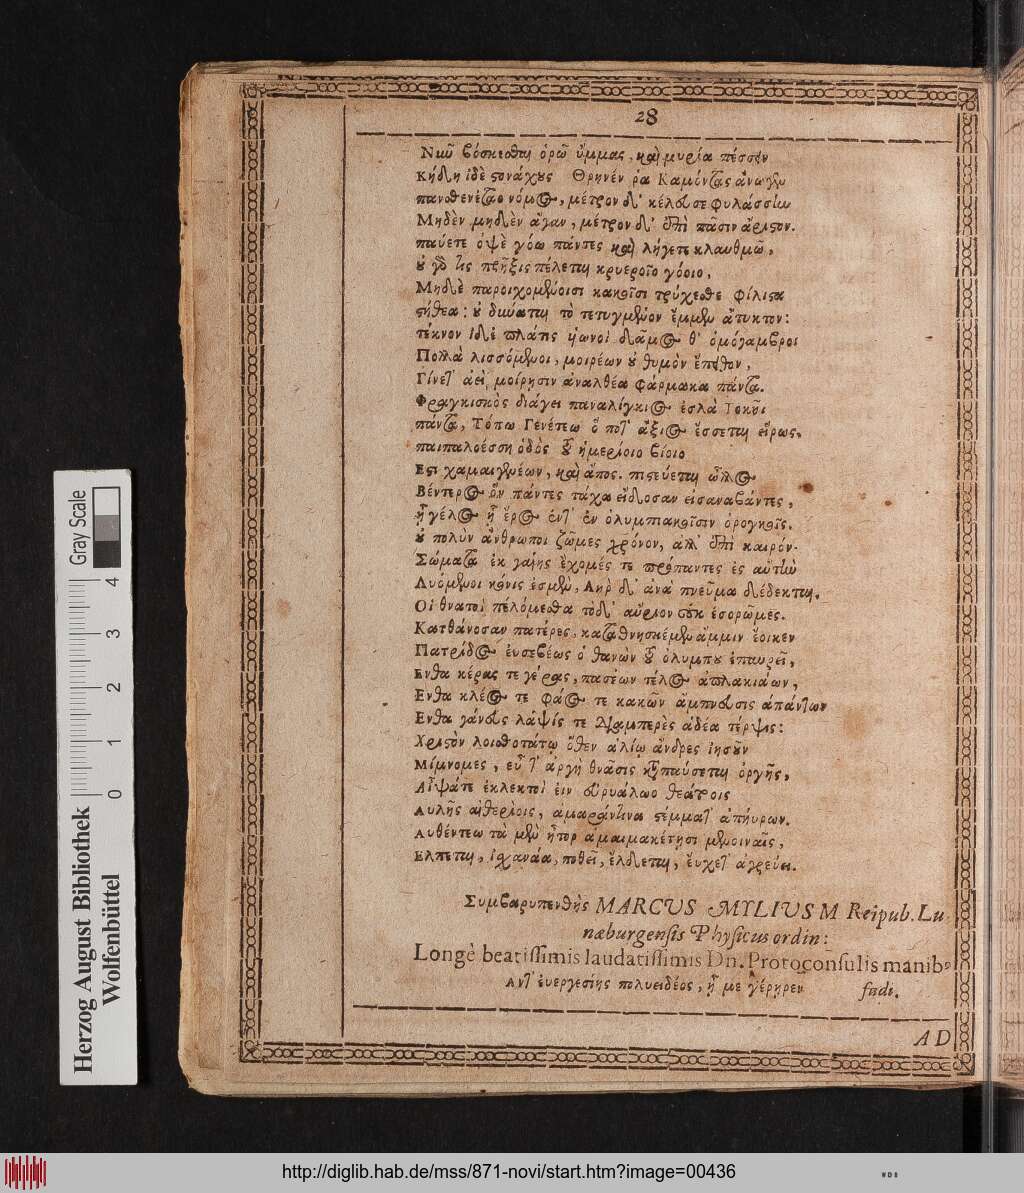 28
Νιῦ βόσκεσθαι ὁρῶ ὔμμας, καὶ μυρία πέσσειν
Κήδη ἰδὲ στονάχους Θρηνέν ῥα Καμόντας ἄνωγεν
μέτρον δ' κέλουσε φυλάσσειν
Μηδὲν μηδὲν ἄγαν, μέτρον δ' ἐπὶ πᾶσιν ἄριστον.
παύετε ὀψὲ γόω πάντες καὶ λήγετε κλαυθμῶ,
οὐ γὸ τις πρῆξις πέλεται κρυεροῖο γόοιο,
Μηδὲ παροιχομένοισι κακοῖσι τρύχεσθε φίλιστα
στήθεα: οὐ δύναται τὸ τετυγμένον ἔμμεν ἄτυκτον:
τέκνον ἰδὲ πλάτις ὑωνοὶ δᾶμος θ' ὁμόγαμβροι
Πολλὰ λισσόμενοι, μοιρέων οὐ θυμὸν ἔπειθον,
Γίνετ' ἀεὶ μοίρησιν ἀναλθέα φάρμακα πάντα.
Φραγκισκὸς διάγει παναλίγκιος ἐσλὰ Τοκῆι
πάντα, Τόπω Γενέτεω ὅ ποτ' ἄξιος ἔσσεται εἵρως.
παιπαλοέσση ὁδὸς τοῦ ἡμερίοιο βίοιο
Εστι χαμαιγενέων, καὶ ἄπος. πιστεύεται ὦλλος
Βέντερος ὃν πάντες τάχα εἴδοσαν εἰσαναβάντες,
ἢ γέλος ἢ ἔρος ἐντ' ἐν ὀλυμπιακοῖσιν ὀρογκοῖς.
οὐ πολὺν ἄνθρωποι ζῶμες χρόνον, ἀλλ' ἐπὶ καιρόν.
Σώματα ἐκ γαίης ἔχομές τε πρόπαντες ἐς αὐτὴν
Λυόμενοι κόνις ἐσμὲν, Αηρ δ' ἀνὰ πνεῦμα δέδεκται.
Οἱ θνατοὶ πελόμεσθα τὸ δ' αὔριον οὐκ ἐσορῶμες.
Κατθάνοσαν πατέρες, καταθνησκέμεν ἄμμιν ἔοικεν
Πατρίδος ἐυσεβέως ὁ θανὼν τοῦ ὀλύμπου ἐπαυρεῖ,
Ενθα κέρας τε γέρας, πασέων τέλος ἀπλακιάων,
Ενθα κλέος τε φάος τε κακῶν ἄμπνευσις ἁπάντων
Ενθα γάνους λάψίς τε διαμπερὲς ἁδέα τέρψις:
Χριστὸν λοισθοτάτῳ ὅθεν ἁλίῳ ἄνδρες ἰησοῦν
Μίμνομες, εὖτ' ἀργὴ θνᾶσις καταπαύσεται ὀργῆς,
Αἶψάτε ἐκλεκτοὶ ἐιν εὐρυάλωο θεάτροις
Αυλῆς αἰθερίοις, ἀμαράντινα στέμματ' ἀπηύρων.
Αυθέντεω τὰ μὲν ἦτορ ἀμαιμακέτησι μενοιναῖς,
Ελπεται, ἰχανάα, ποθεῖ, ἔλδεται, ἔυχετ' ἀγρεύει.
Συμβαρυπενθὴς MARCVS MYLIVS M Reipub. Lu
næburgensis Physicus ordin:
Longè beatissimis laudatissimis Dn. Protoconsulis manibꝰ
Αντ' ἐυεργεσίης πολυειδέος, ἥ με γέρηρεν fudi.
A D
Herzog August Bibliothek
Wolfenbüttel
Gray Scale
0 1 2 3 4
http://diglib.hab.de/mss/871-novi/start.htm?image=00436